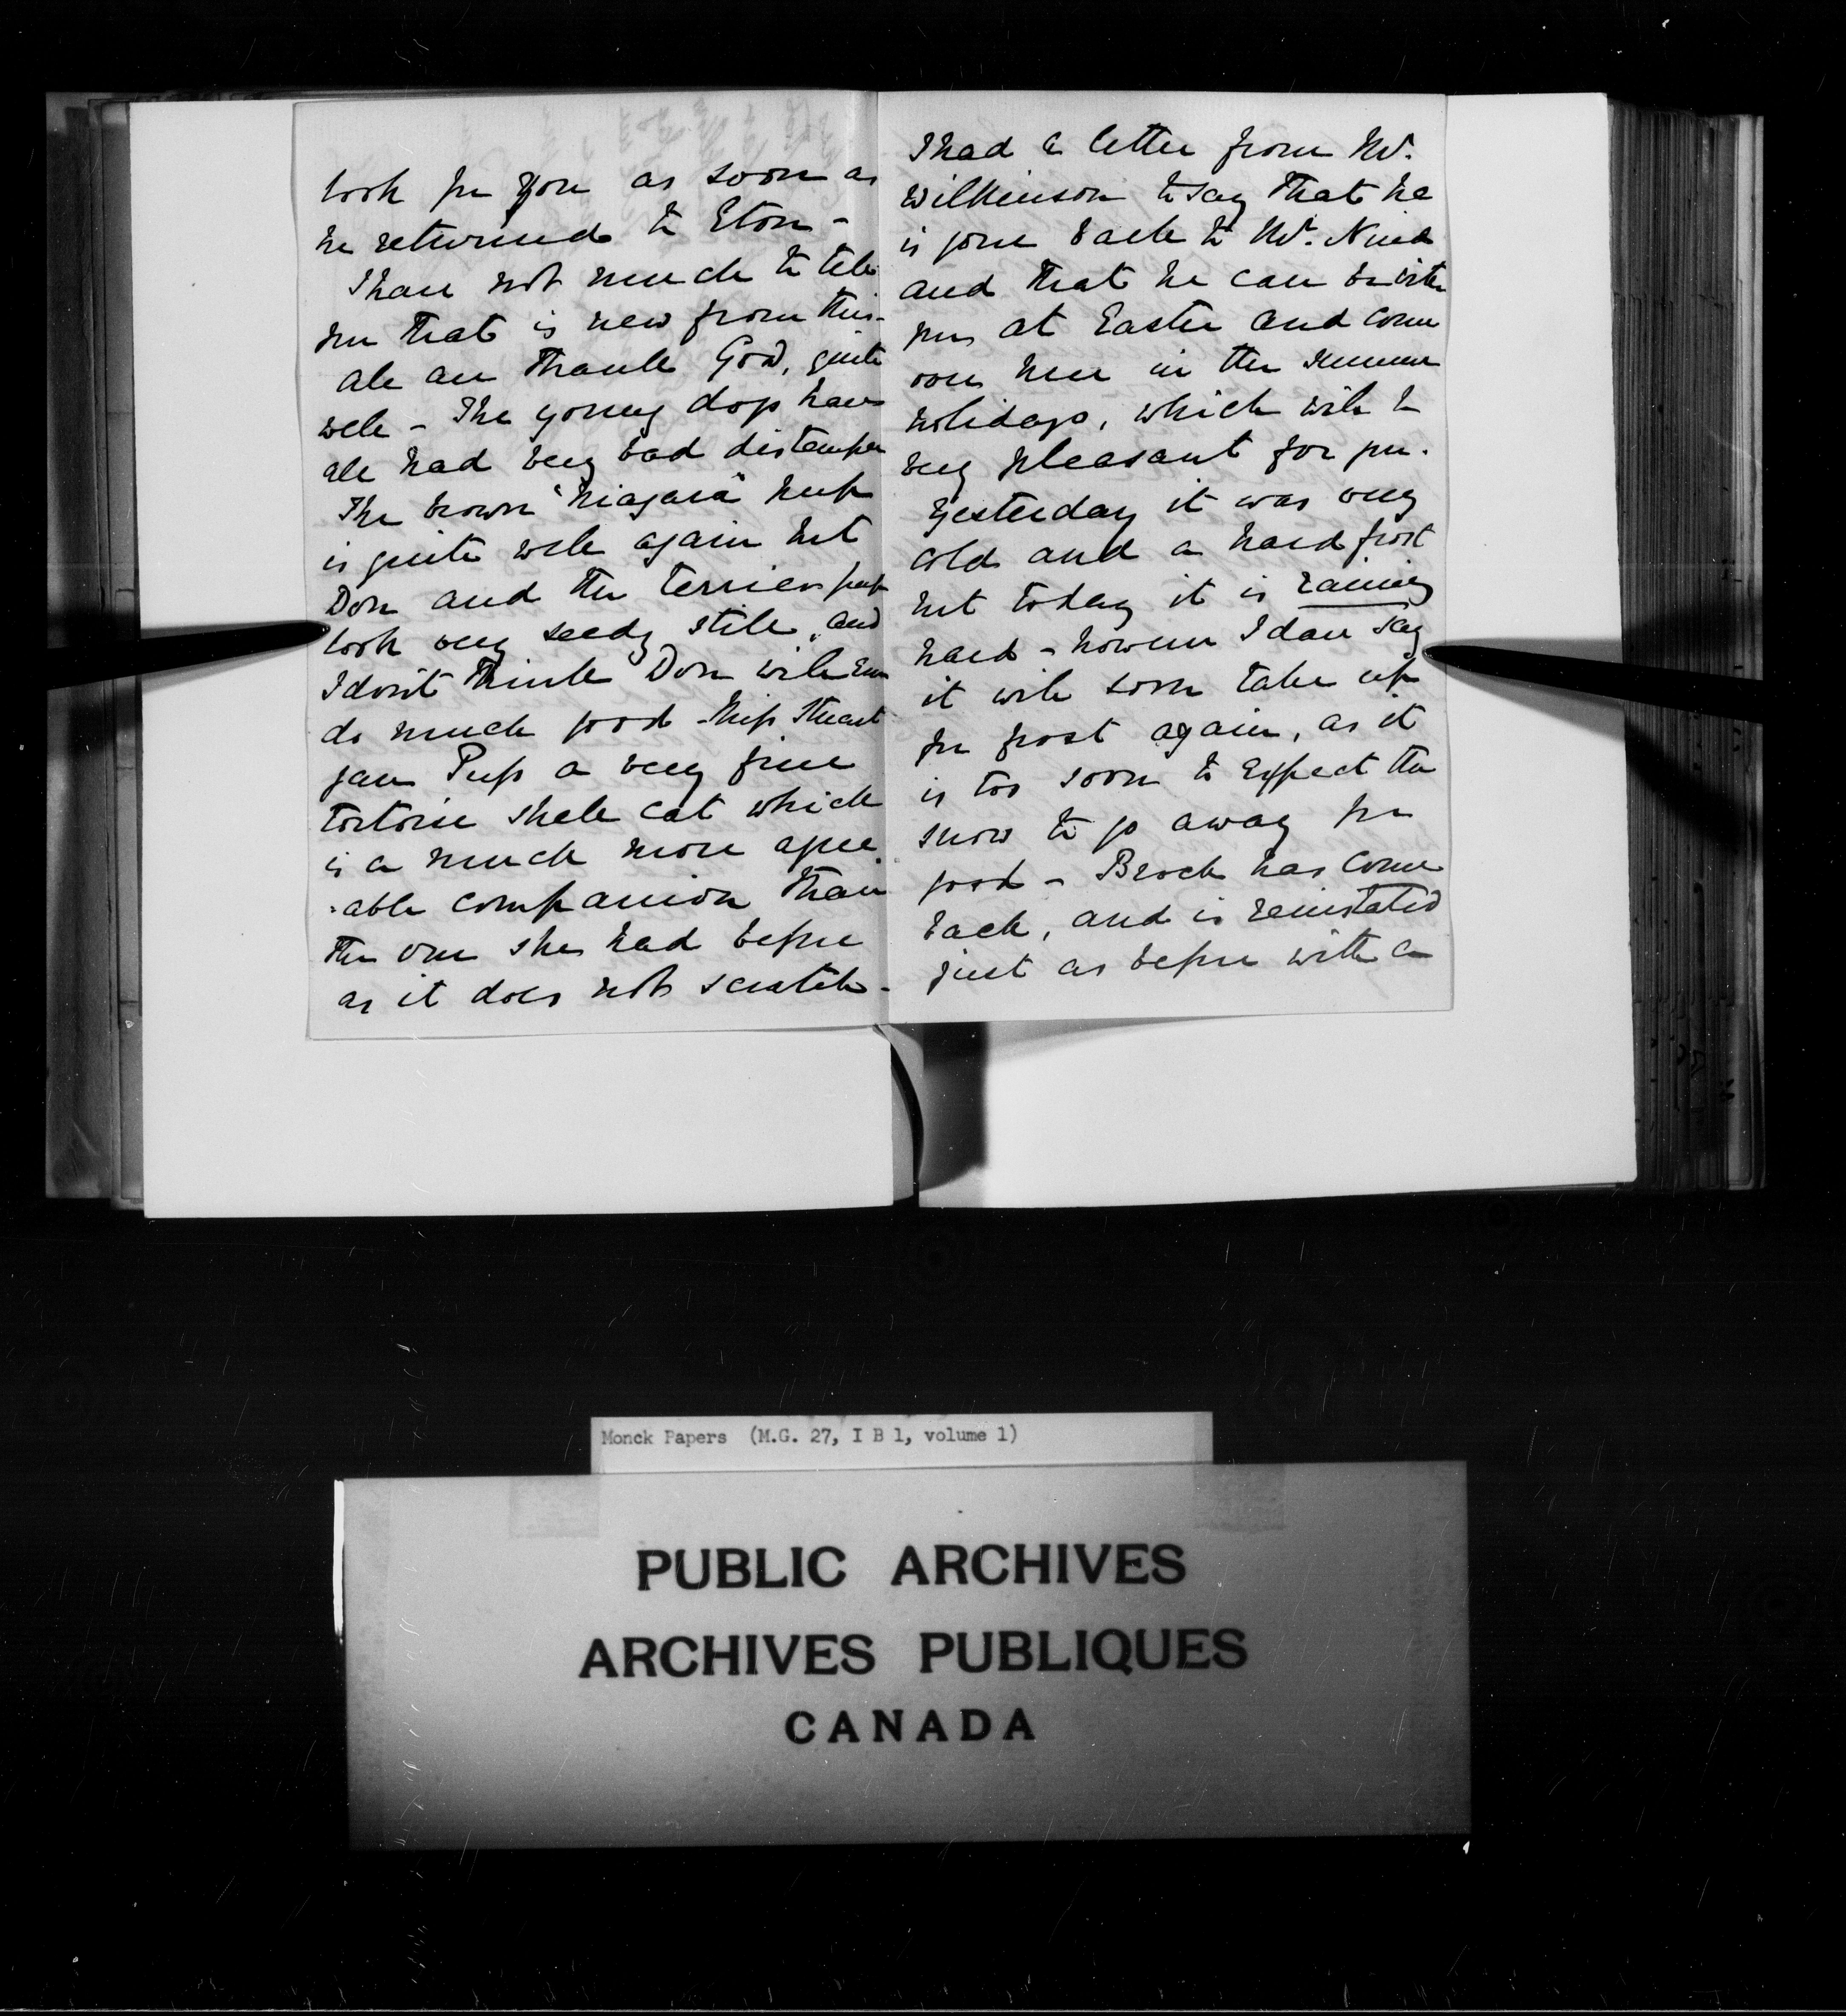 look for you as soon as
he returned to Eton -
I have not much to tell
you that is new from this -
all are thank God, quite
well - The young dogs have
all had very bad distemper
The brown "Niagara" pup
is quite well again but
Don and the terrier pup
look very seedy still, and
I don't think Don will ever
do much good - Miss Stuart
gave Puss a very fine
tortoise shell cat which
is a much more agree
=able companion than
the one she had before
as it does not scratch -
I had a letter from Mr.
Wilkinson to say that he
is gone back to Mr. Nind
and that he can be with
you at Easter and come
over here in the summer
holidays, which will be
very pleasant for you.
Yesterday it was very
cold and a hard frost
but today it is raining
hard - however I dare say
it will soon take up
for frost again, as it
is too soon to expect the
snow to go away for
good - Brock has come
back, and is reinstated
just as before with a
Monck Papers (M.G. 27, I B 1, volume 1)
PUBLIC ARCHIVES
ARCHIVES PUBLIQUES
CANADA